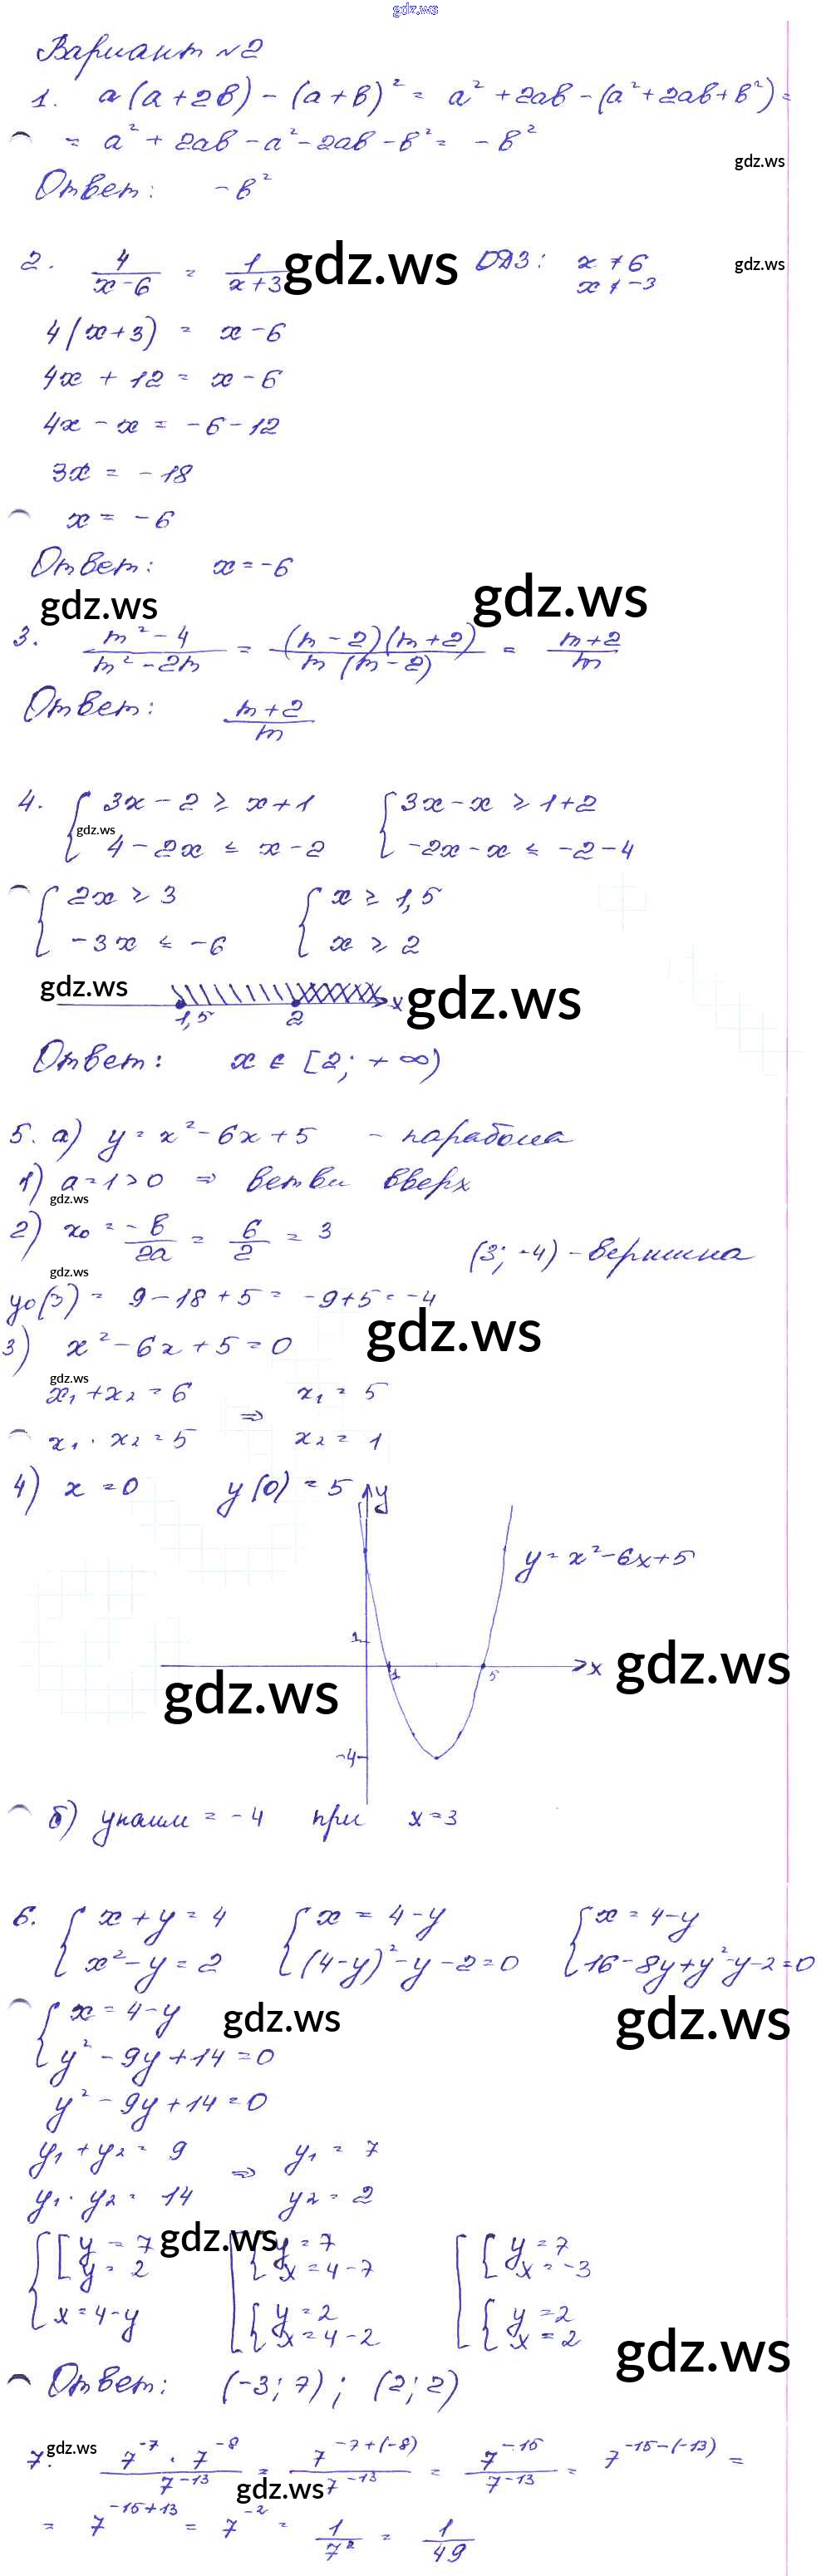 gdz.ws
Вариант №2
1. a(a+2b)-(a+b)² = a²+2ab-(a²+2ab+b²)=
= a²+2ab-a²-2ab-b² = -b²
gdz.ws
Ответ: -b²
2. 4/(x-6) = 1/(x+3) gdz.ws ОДЗ: x≠6 gdz.ws
x≠-3
4(x+3) = x-6
4x+12 = x-6
4x-x = -6-12
3x = -18
x = -6
Ответ: x=-6
gdz.ws gdz.ws
3. (m²-4)/(m²-2m) = (m-2)(m+2)/(m(m-2)) = (m+2)/m
Ответ: (m+2)/m
4. { 3x-2 ≥ x+1 { 3x-x ≥ 1+2
gdz.ws
4-2x ≤ x-2 -2x-x ≤ -2-4
{ 2x ≥ 3 { x ≥ 1,5
-3x ≤ -6 x ≥ 2
gdz.ws x gdz.ws
1,5 2
Ответ: x ∈ [2; +∞)
5. а) y = x²-6x+5 - парабола
1) a=1>0 ⇒ ветви вверх
gdz.ws
2) x₀ = -b/2a = 6/2 = 3
(3; -4) - вершина
gdz.ws
y₀(3) = 9-18+5 = -9+5 = -4
gdz.ws
3) x²-6x+5=0
gdz.ws
x₁+x₂=6 ⇒ x₁=5
x₁·x₂=5 x₂=1
4) x=0 y(0)=5 y
y=x²-6x+5
1
x gdz.ws
1 5
gdz.ws
-4
б) yнаим = -4 при x=3
6. { x+y=4 { x=4-y { x=4-y
x²-y=2 (4-y)²-y-2=0 16-8y+y²-y-2=0
{ x=4-y gdz.ws gdz.ws
y²-9y+14=0
y²-9y+14=0
y₁+y₂=9 ⇒ y₁=7
y₁·y₂=14 y₂=2
{ [ y=7 gdz.ws [ { y=7 [ { y=7
y=2 x=4-7 x=-3
x=4-y { y=2 { y=2
x=4-2 x=2
gdz.ws
Ответ: (-3; 7); (2; 2)
7. gdz.ws (7⁻⁷·7⁻⁸)/7⁻¹³ = 7⁻⁷⁺⁽⁻⁸⁾/7⁻¹³ = 7⁻¹⁵/7⁻¹³ = 7⁻¹⁵⁻⁽⁻¹³⁾ =
gdz.ws
= 7⁻¹⁵⁺¹³ = 7⁻² = 1/7² = 1/49